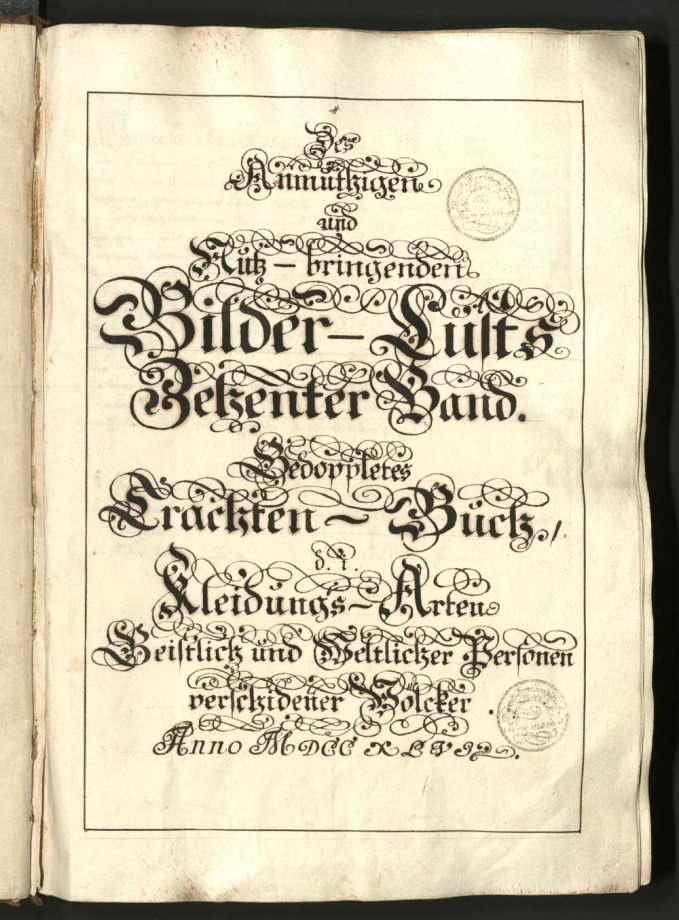 Des
Anmuthigen
und
Nutz - bringenden
Bilder - Lusts
Zehenter Band.
Gedoppletes
Trachten ~ Buch,
d. i.
Kleidungs - Arten
Geistlich und Weltlicher Personen
verschidener Volcker.
Anno MDCC XLVII.